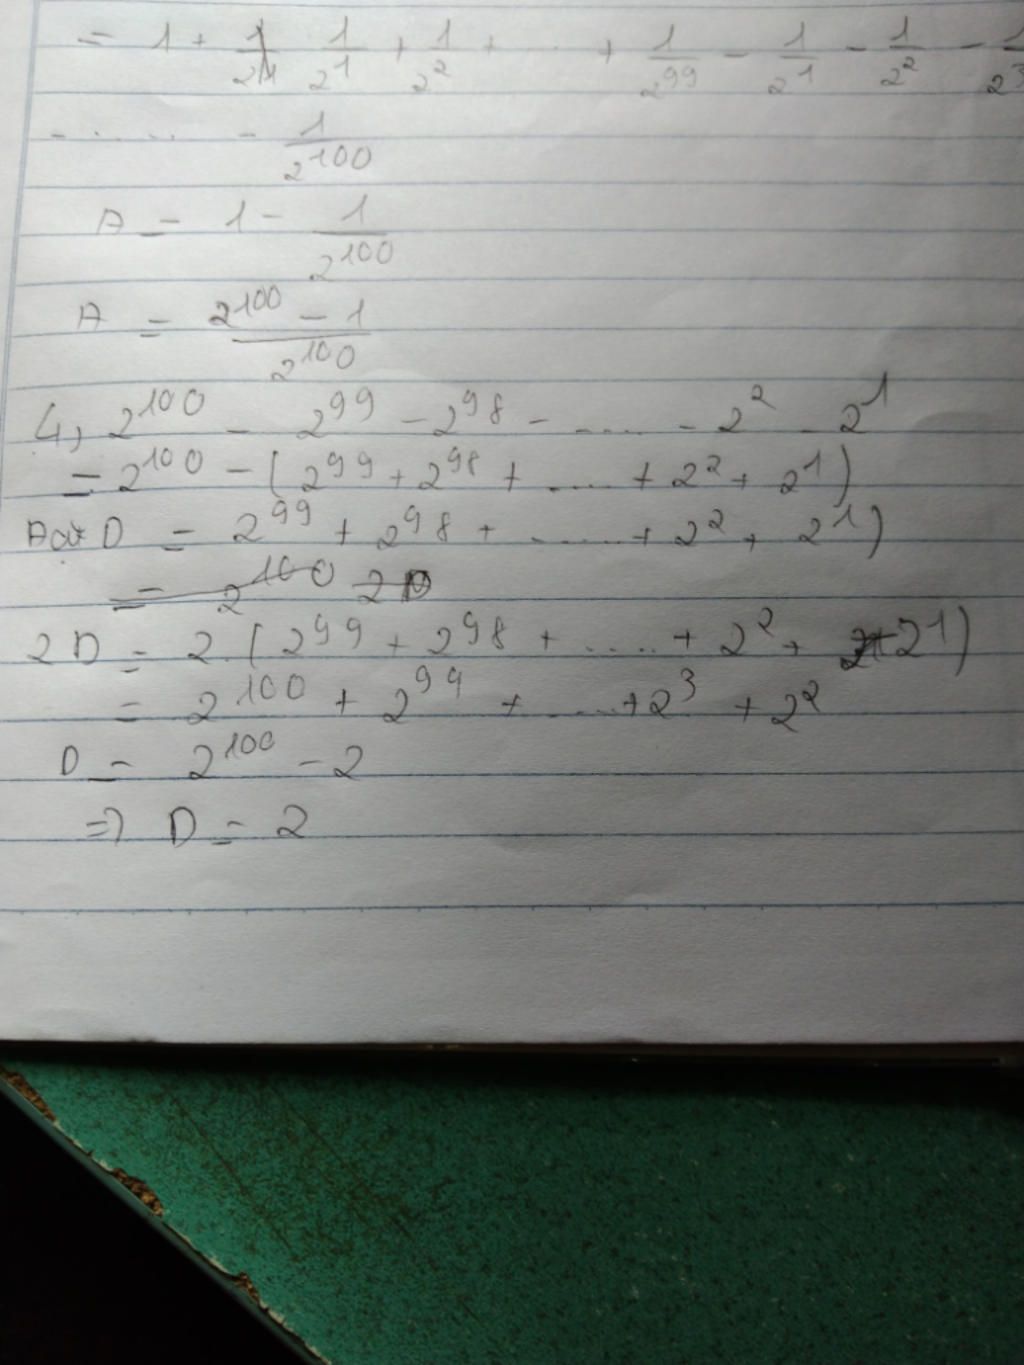 = 1 + 1/2^1 1/2^1 + 1/2^2 + ..... + 1/2^99 - 1/2^1 - 1/2^2 - 1/2^3
- ..... - 1/2^100
A = 1 - 1/2^100
A = (2^100 - 1)/2^100
4, 2^100 - 2^99 - 2^98 - ..... - 2^2 - 2^1
= 2^100 - (2^99 + 2^98 + ..... + 2^2 + 2^1)
Đặt D = 2^99 + 2^98 + ..... + 2^2 + 2^1)
= 2^100 2D
2D = 2.(2^99 + 2^98 + ..... + 2^2 + 2^1)
= 2^100 + 2^99 + ..... + 2^3 + 2^2
D = 2^100 - 2
=> D = 2